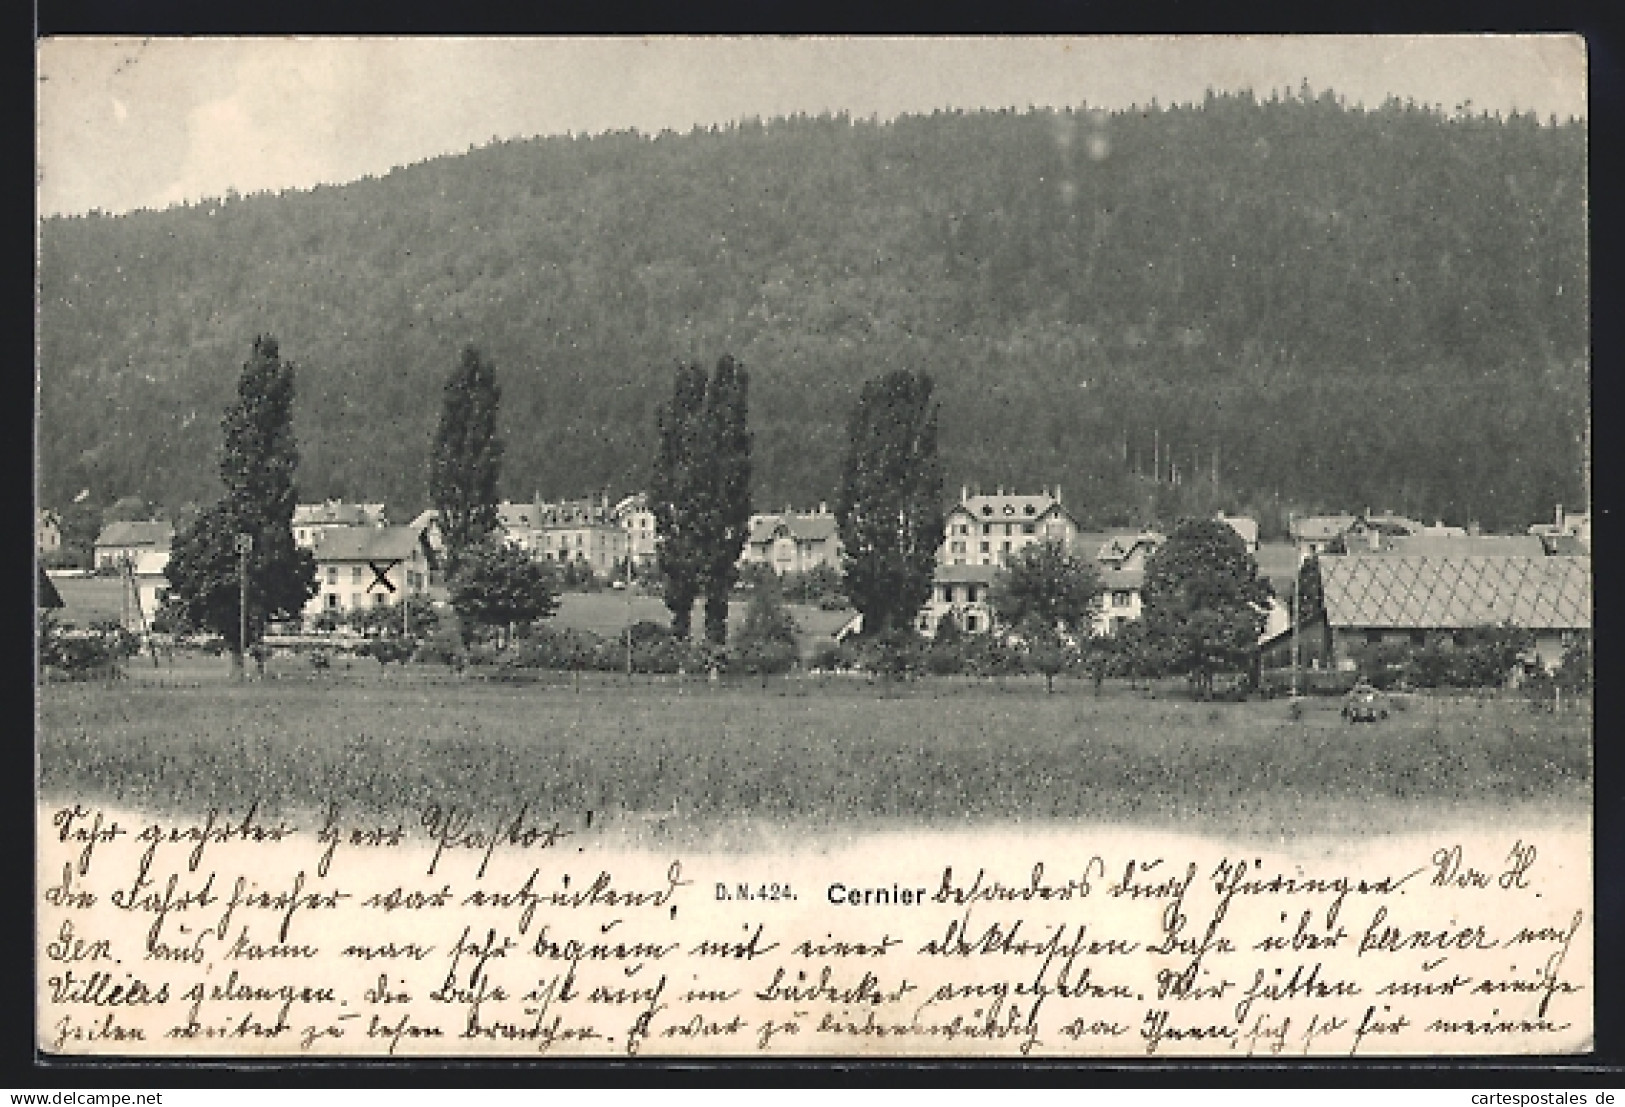 Sehr geehrter Herr Pastor!
Die Fahrt hierher war entzückend,
D.N.424. Cernier
besonders durch Thüringen. Von H.
Gen. aus kann man sehr bequem mit einer elektrischen Bahn über Cernier nach
Villiers gelangen. Die Bahn ist auch im Bädecker angegeben. Wir hätten nur einige
Zeilen weiter zu lesen brauchen. Es war zu liebenswürdig von Ihnen, sich so für meinen
cartespostales de
www.delcampe.net